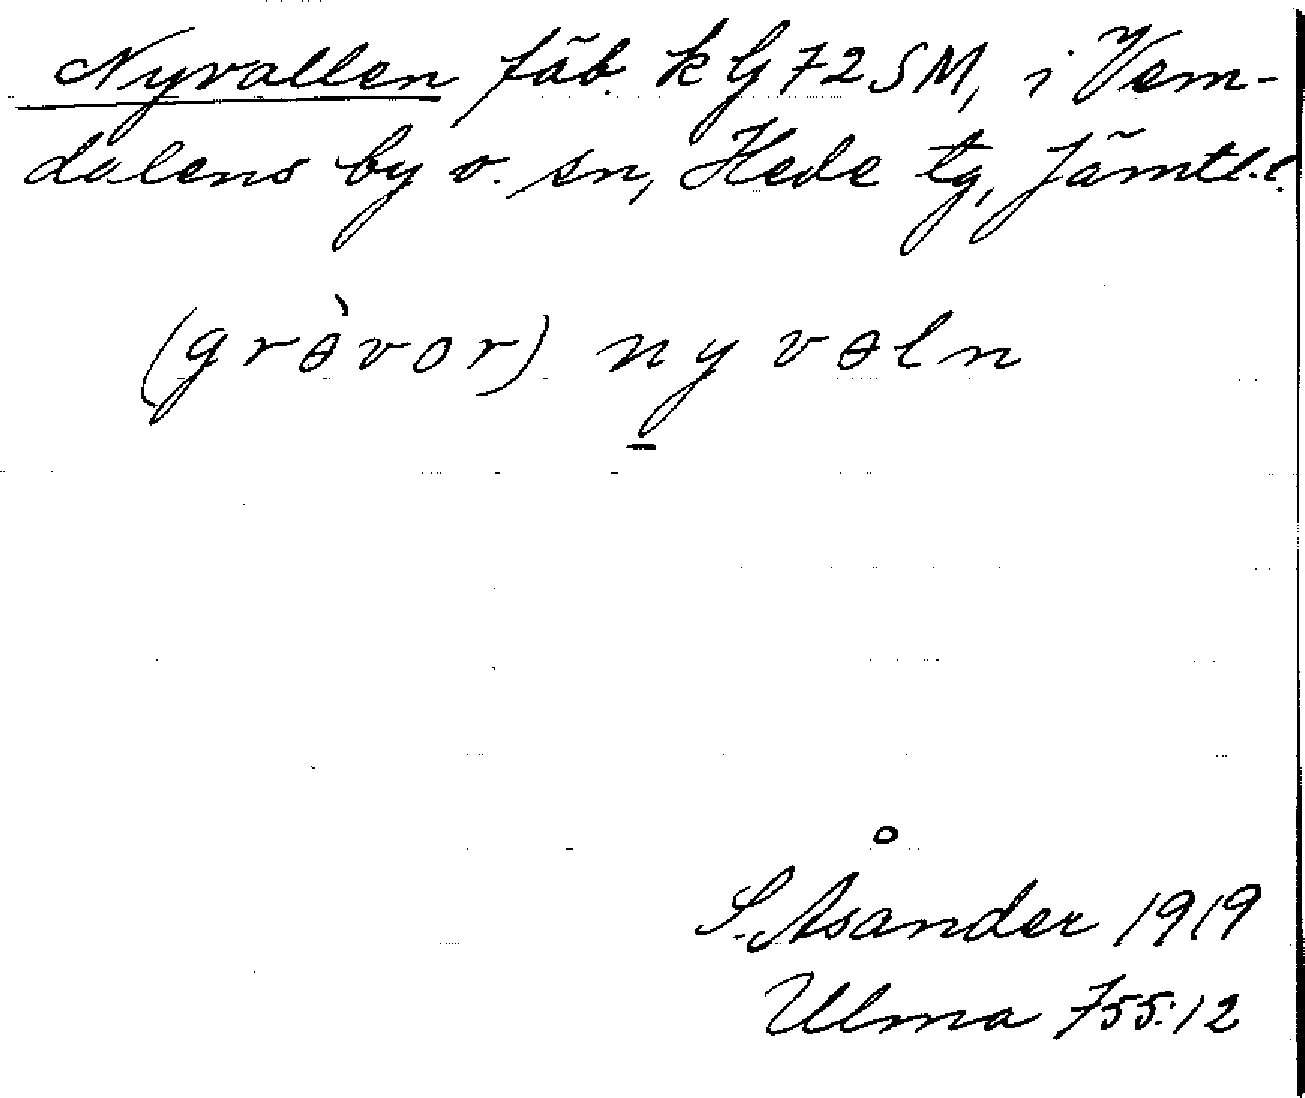 Nyvallen fäb. k G72SM, i Vem-
dalens by o. sn, Hede tg, Jämtl.l.
(grɵ̀vor) nyvɵln
S. Åsander 1919
Ulma 755:12